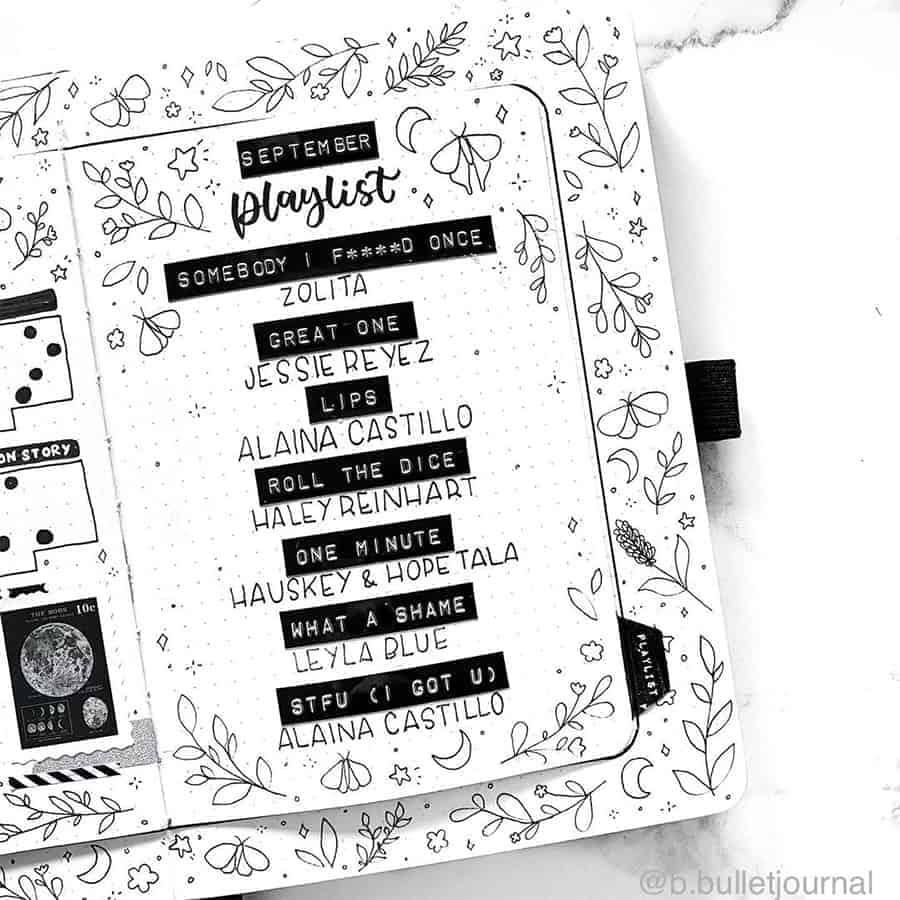 SEPTEMBER
playlist
SOMEBODY I F****D ONCE
ZOLITA
GREAT ONE
JESSIE REYEZ
LIPS
ALAINA CASTILLO
ROLL THE DICE
HALEY REINHART
ONE MINUTE
HAUSKEY & HOPE TALA
WHAT A SHAME
LEYLA BLUE
STFU (I GOT U)
ALAINA CASTILLO
PLAYLIST
ON STORY
THE MOON 10c
@b.bulletjournal